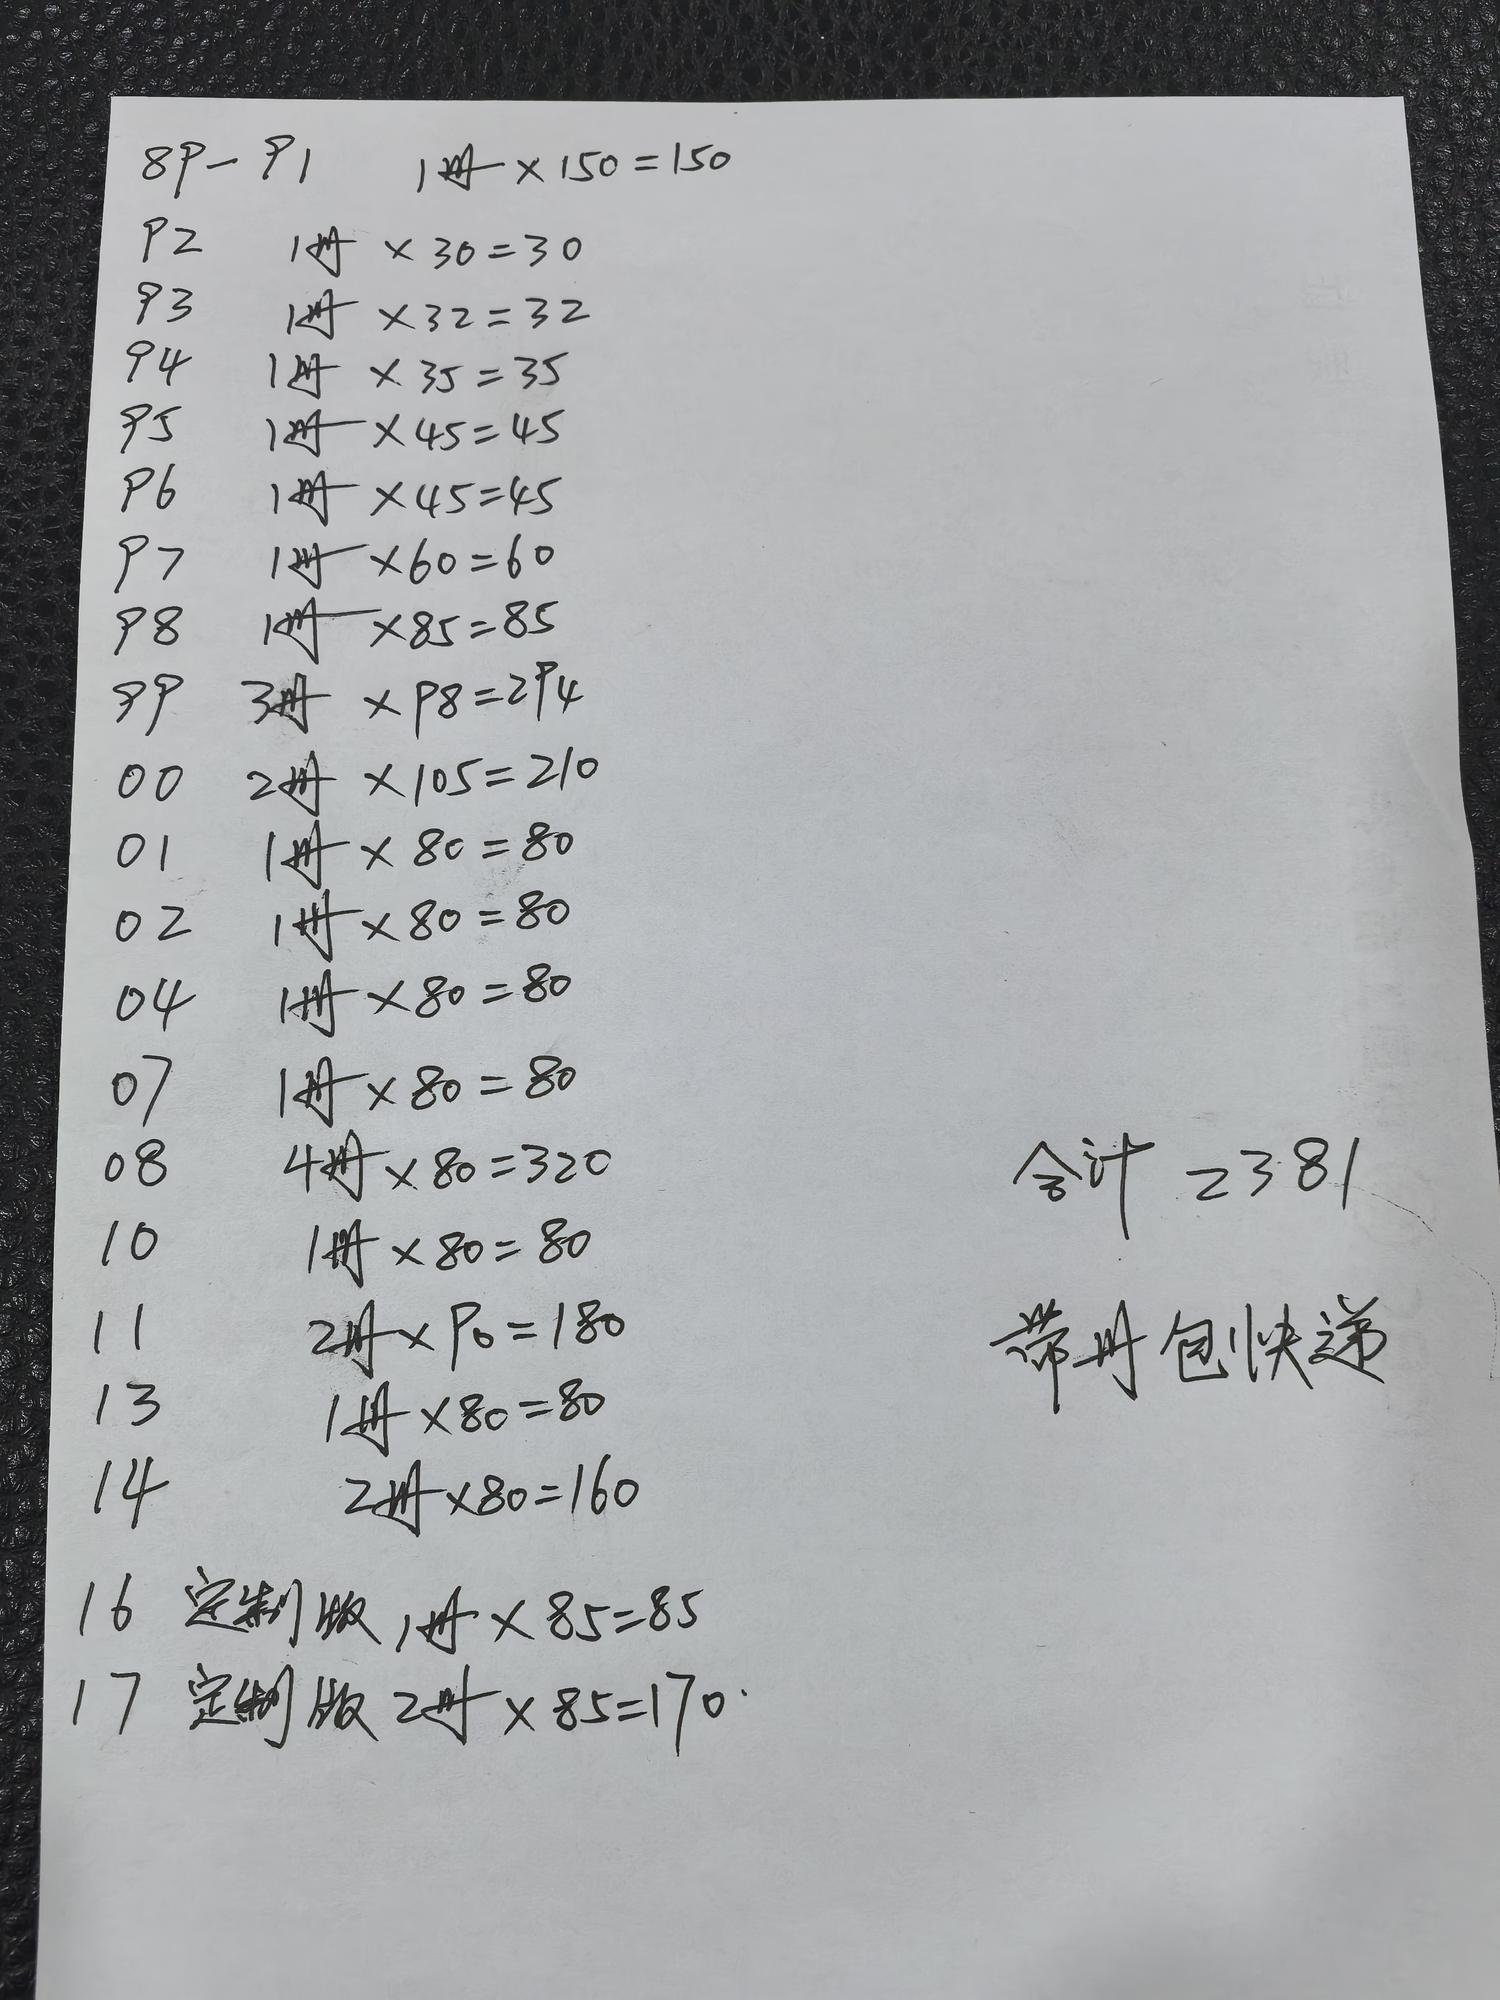 89-91 1册×150=150
92 1册×30=30
93 1册×32=32
94 1册×35=35
95 1册×45=45
96 1册×45=45
97 1册×60=60
98 1册×85=85
99 3册×98=294
00 2册×105=210
01 1册×80=80
02 1册×80=80
04 1册×80=80
07 1册×80=80
08 4册×80=320
10 1册×80=80
11 2册×90=180
13 1册×80=80
14 2册×80=160
16 定制版 1册×85=85
17 定制版 2册×85=170
合计 2381
带册包快递